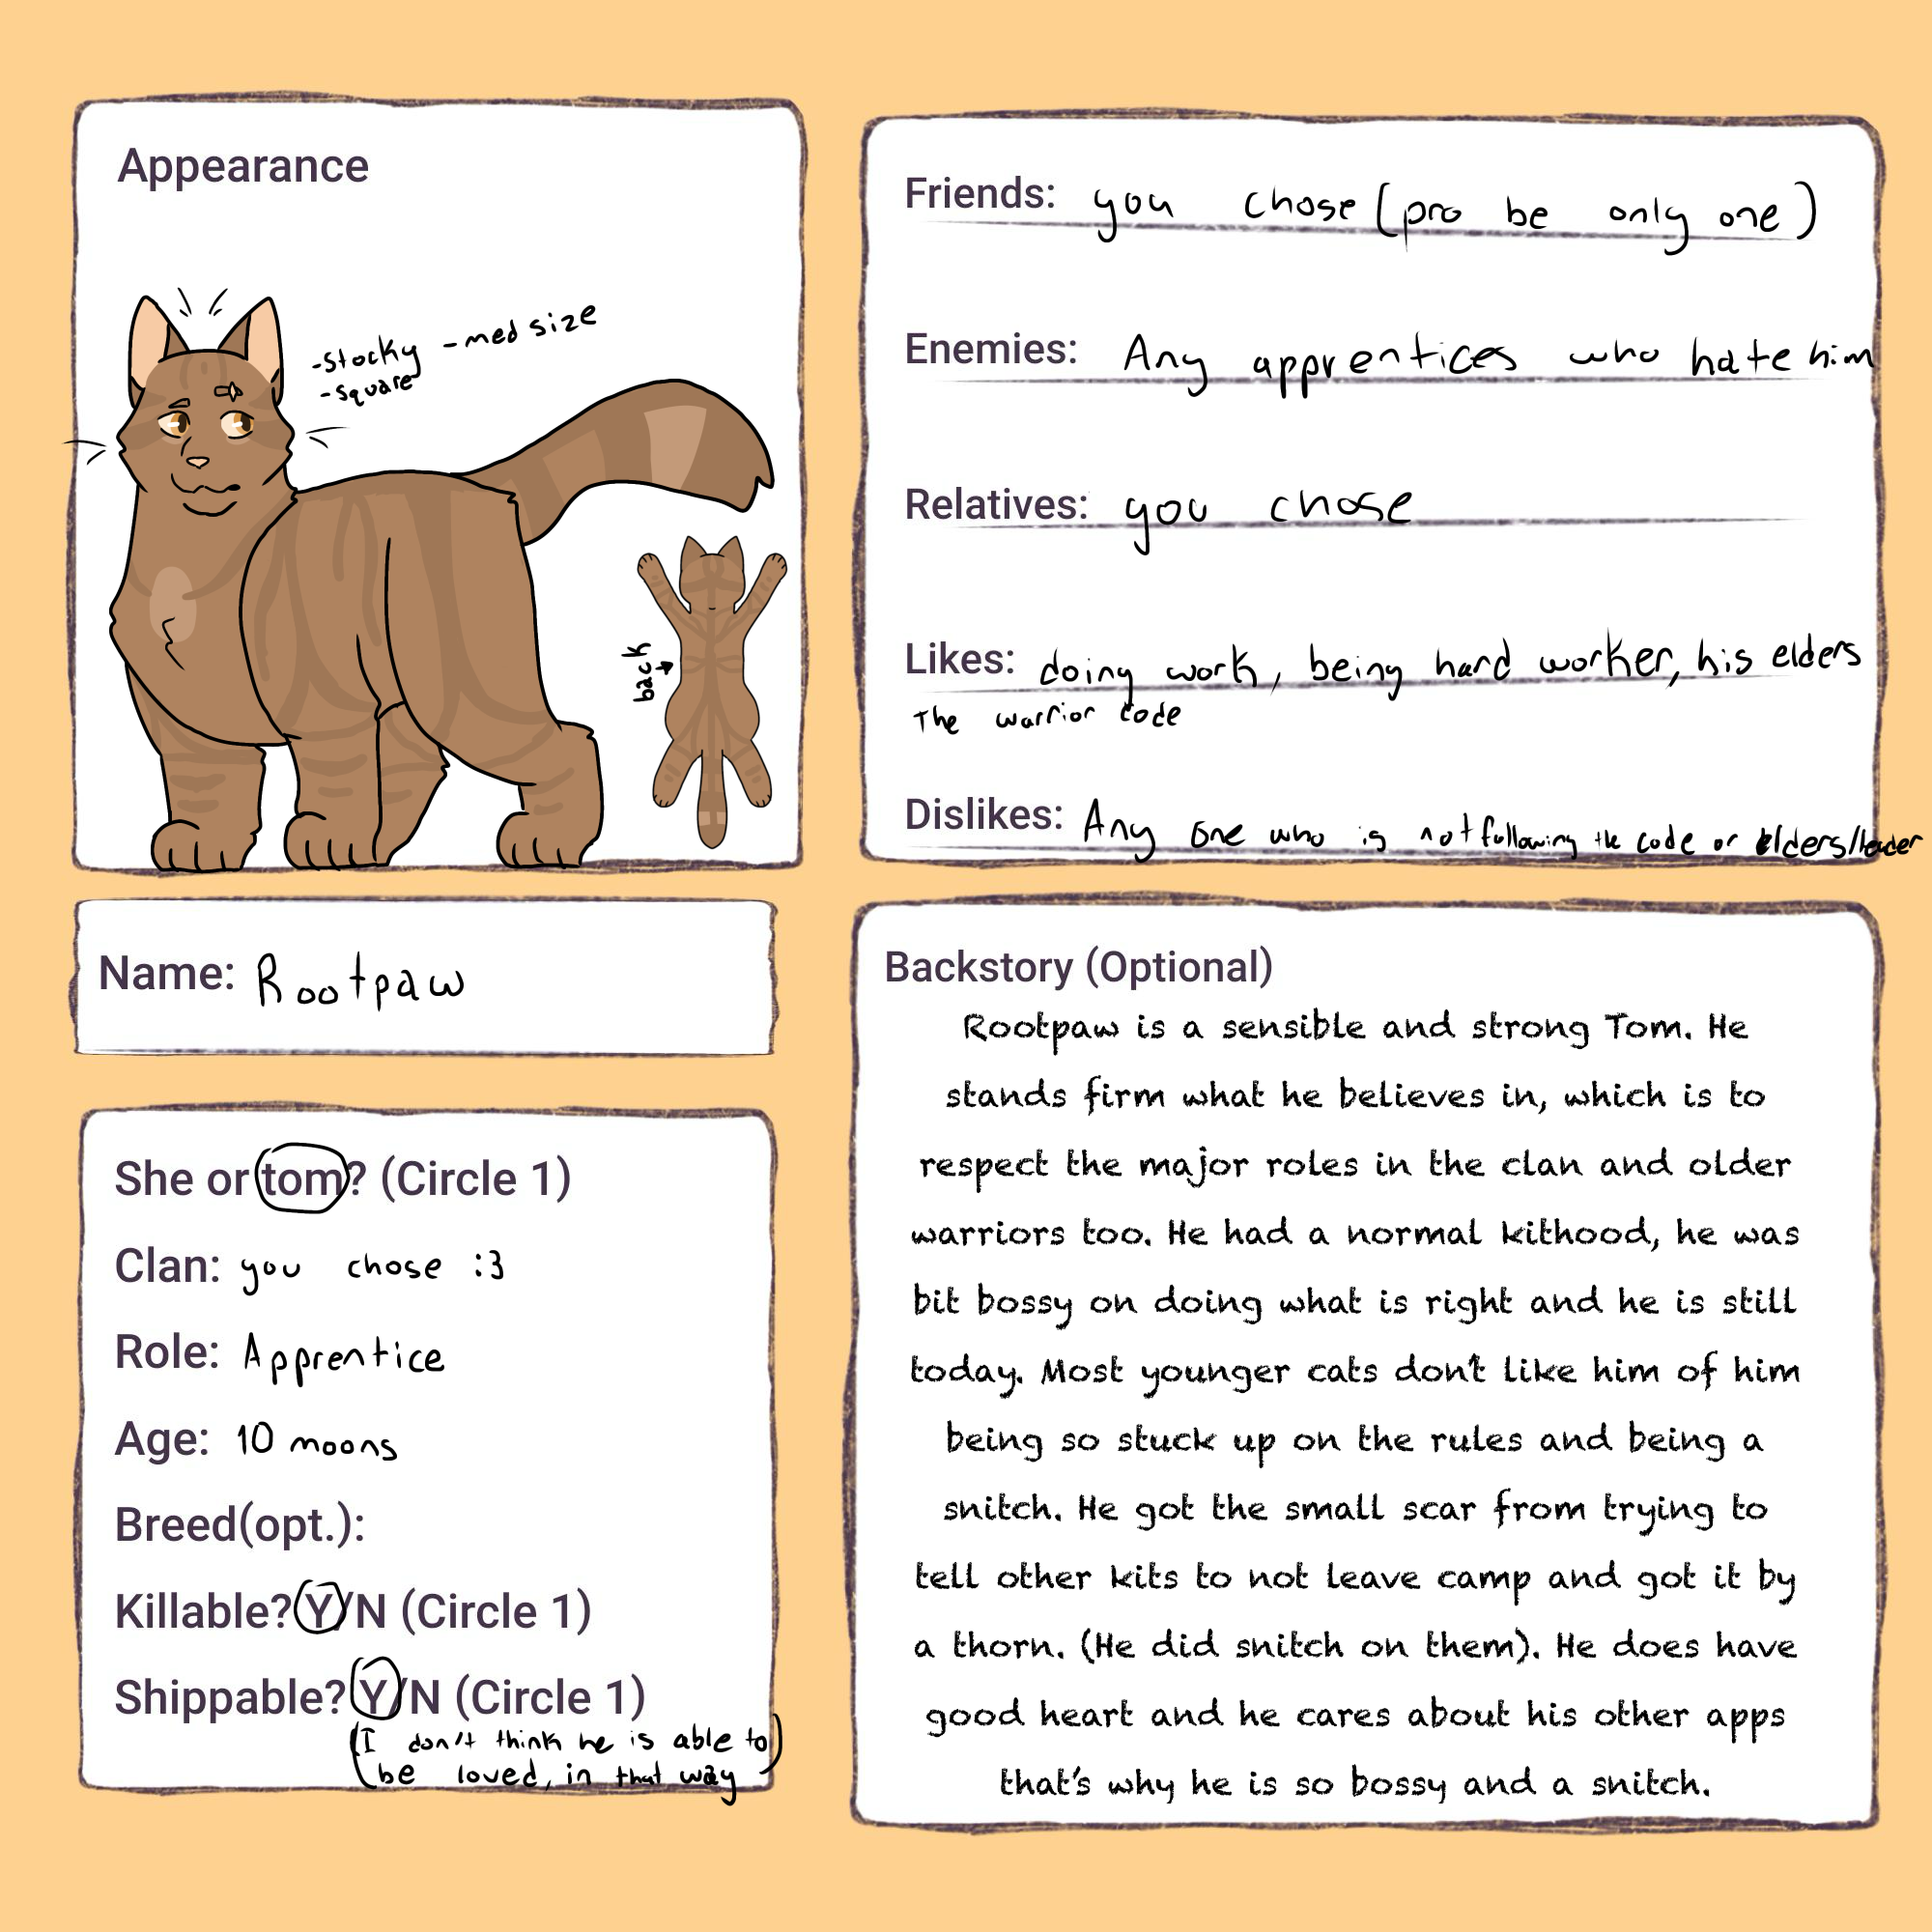 Appearance
-stocky -med size
-square
back
Name: Rootpaw
She or tom? (Circle 1)
Clan: you chose :3
Role: Apprentice
Age: 10 moons
Breed(opt.):
Killable? Y/N (Circle 1)
Shippable? Y/N (Circle 1)
(I don't think he is able to
be loved, in that way)
Friends: you chose (pro be only one)
Enemies: Any apprentices who hate him
Relatives: you chose
Likes: doing work, being hard worker, his elders
The warrior code
Dislikes: Any one who is not following the code or elders/leader
Backstory (Optional)
Rootpaw is a sensible and strong Tom. He
stands firm what he believes in, which is to
respect the major roles in the clan and older
warriors too. He had a normal kithood, he was
bit bossy on doing what is right and he is still
today. Most younger cats don't like him of him
being so stuck up on the rules and being a
snitch. He got the small scar from trying to
tell other kits to not leave camp and got it by
a thorn. (He did snitch on them). He does have
good heart and he cares about his other apps
that's why he is so bossy and a snitch.